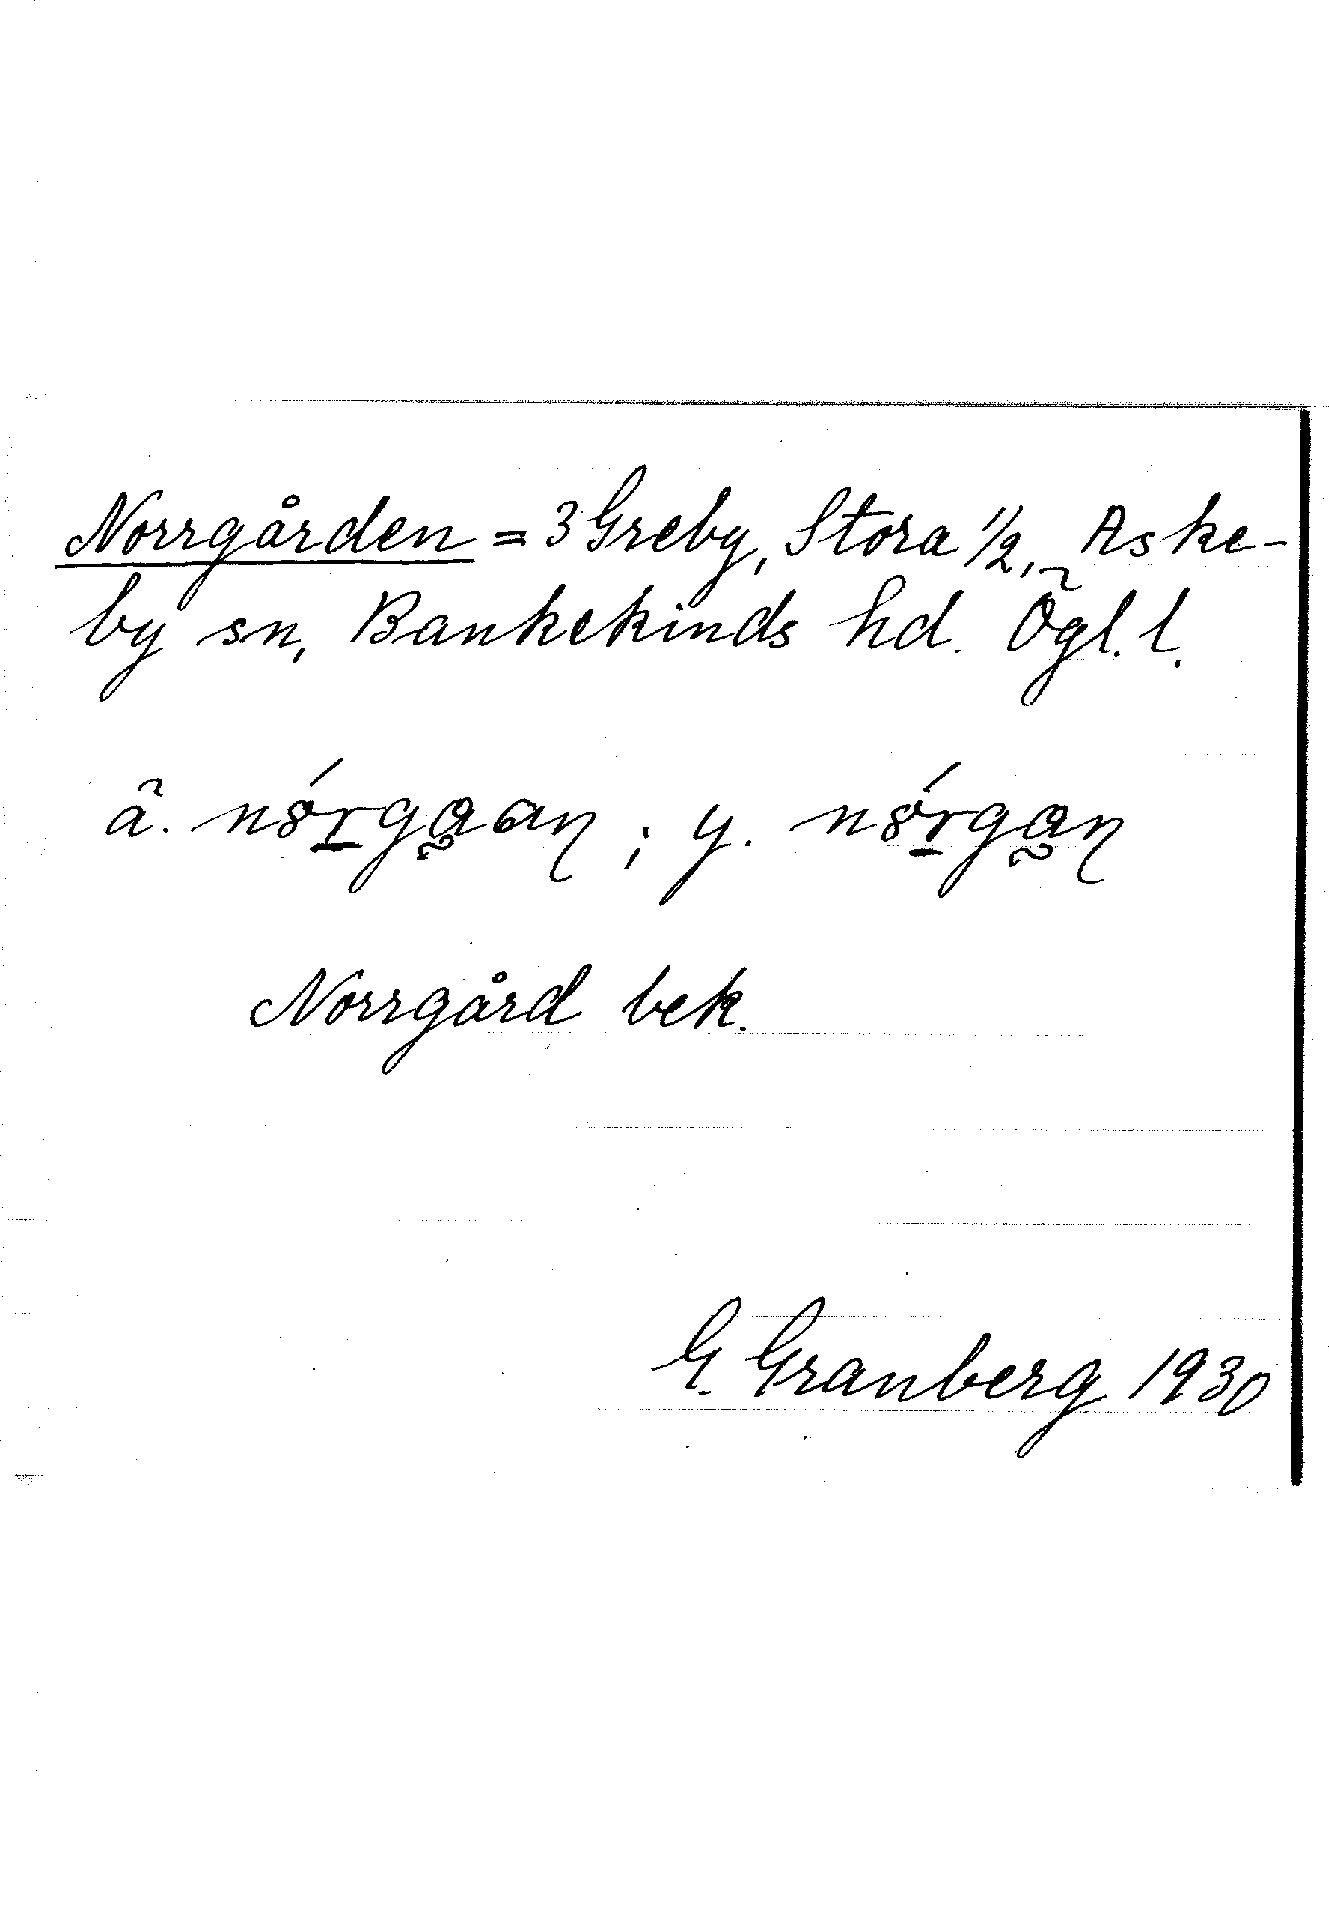 Norrgården = 3 Greby, Stora 1/2, Aske-
by sn, Bankekinds hd. Ögl. l.
ä. nórgaan ; y. nórgan
Norrgård bek.
G. Granberg 1930